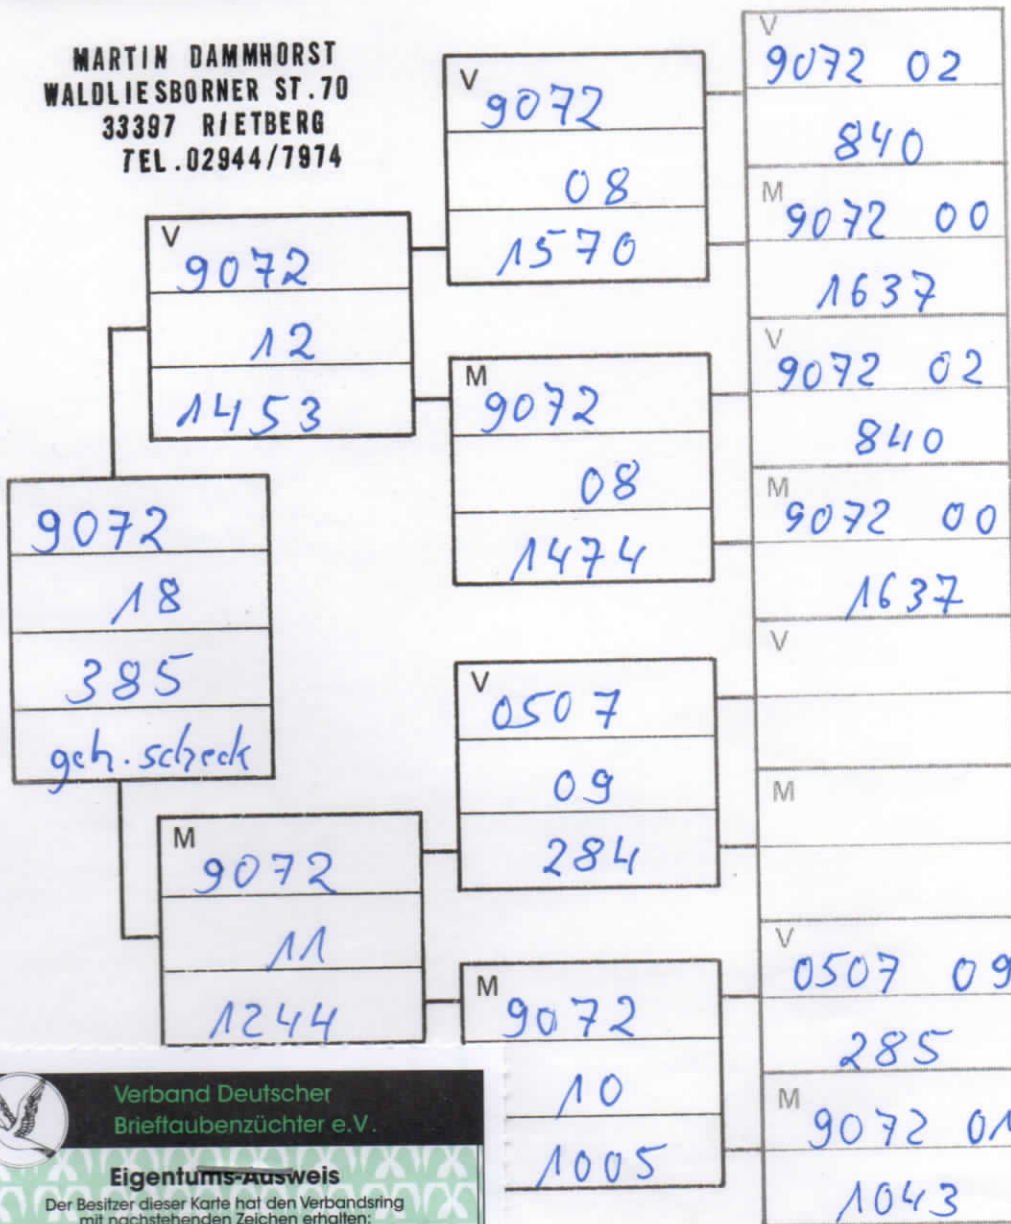 MARTIN DAMMHORST
WALDLIESBORNER ST.70
33397 RIETBERG
TEL.02944/7974
9072
18
385
geh. scheck
V
9072
12
1453
M
9072
11
1244
V
9072
08
1570
M
9072
08
1474
V
0507
09
284
M
9072
10
1005
V
9072 02
840
M
9072 00
1637
V
9072 02
840
M
9072 00
1637
V
M
V
0507 09
285
M
9072 01
1043
Verband Deutscher
Brieftaubenzüchter e.V.
Eigentums-Ausweis
Der Besitzer dieser Karte hat den Verbandsring
mit nachstehenden Zeichen erhalten: